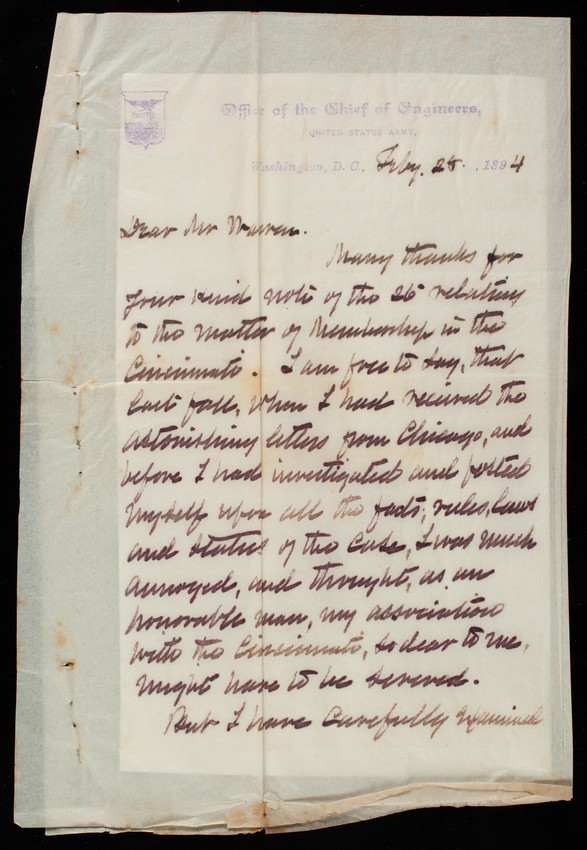 Office of the Chief of Engineers,
UNITED STATES ARMY,
Washington, D. C., Feby. 28. , 1894
Dear Mr Warren.
Many thanks for
your kind note of the 26 relating
to the matter of Membership in the
Cincinnati. I am free to say, that
last fall, when I had received the
astonishing letters from Chicago, and
before I had investigated and posted
myself upon all the facts, rules, laws
and status of the Case, I was much
annoyed, and thought, as an
honorable man, my association
with the Cincinnati, so dear to me,
might have to be severed.
But I have Carefully examined